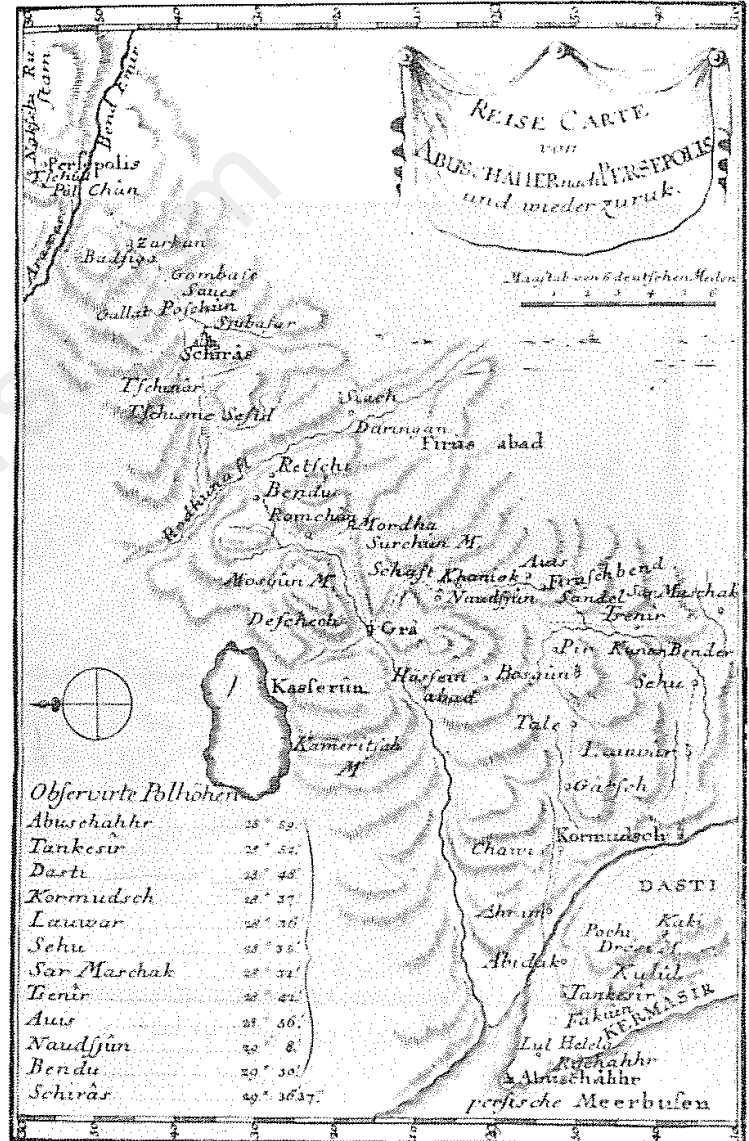 REISE CARTE
von
ABUSCHÄHER nach PERSEPOLIS
und wieder zurük.
Maasstab von 6 deutschen Meilen
1 2 3 4 5 6
Nakschi Ru
stam
Bend Emir
Persepolis
Pol Chûn
Zarkan
Badsiga
Gombase
Saues
Gallat Poschûn
Schirâs
Tschinâr
Tschisme Sefid
Siach
Daringan
Firûs abad
Rodhuna fl
Retschi
Bendu
Romchan
Mordha
Surchûn M.
Mosgûn M.
Schaft
Khaniok
Auis
Firaschbend
Naudsjûn
Sandel
Sar Maschak
Tsenir
Deschech
Grâ
Pir
Kunar Bender
Kasserûn
Hussein
abad
Bosgûn
Sehu
Tale
Kameritsch
M
Lauwâr
Gàrsch
Chawi
Kormudsch
DASTI
Ahrim
Pochi
Kaki
Abidak
Kulûl
Tankesir
Fakuin
KERMASIR
Lul Helela
Rischahhr
Abuschähhr
persische Meerbusen
Observirte Polhöhen
Abuschahhr 28° 59.'
Tankesîr 28° 52.'
Dasti 28° 48.'
Kormudsch 28° 37.'
Lauwar 28° 36.'
Sehu 28° 35.'
Sar Maschak 28° 31.'
Tsenîr 28° 42.'
Auis 28° 56.'
Naudsjûn 29° 8.'
Bendu 29° 30.'
Schirâs 29° 36' 37."